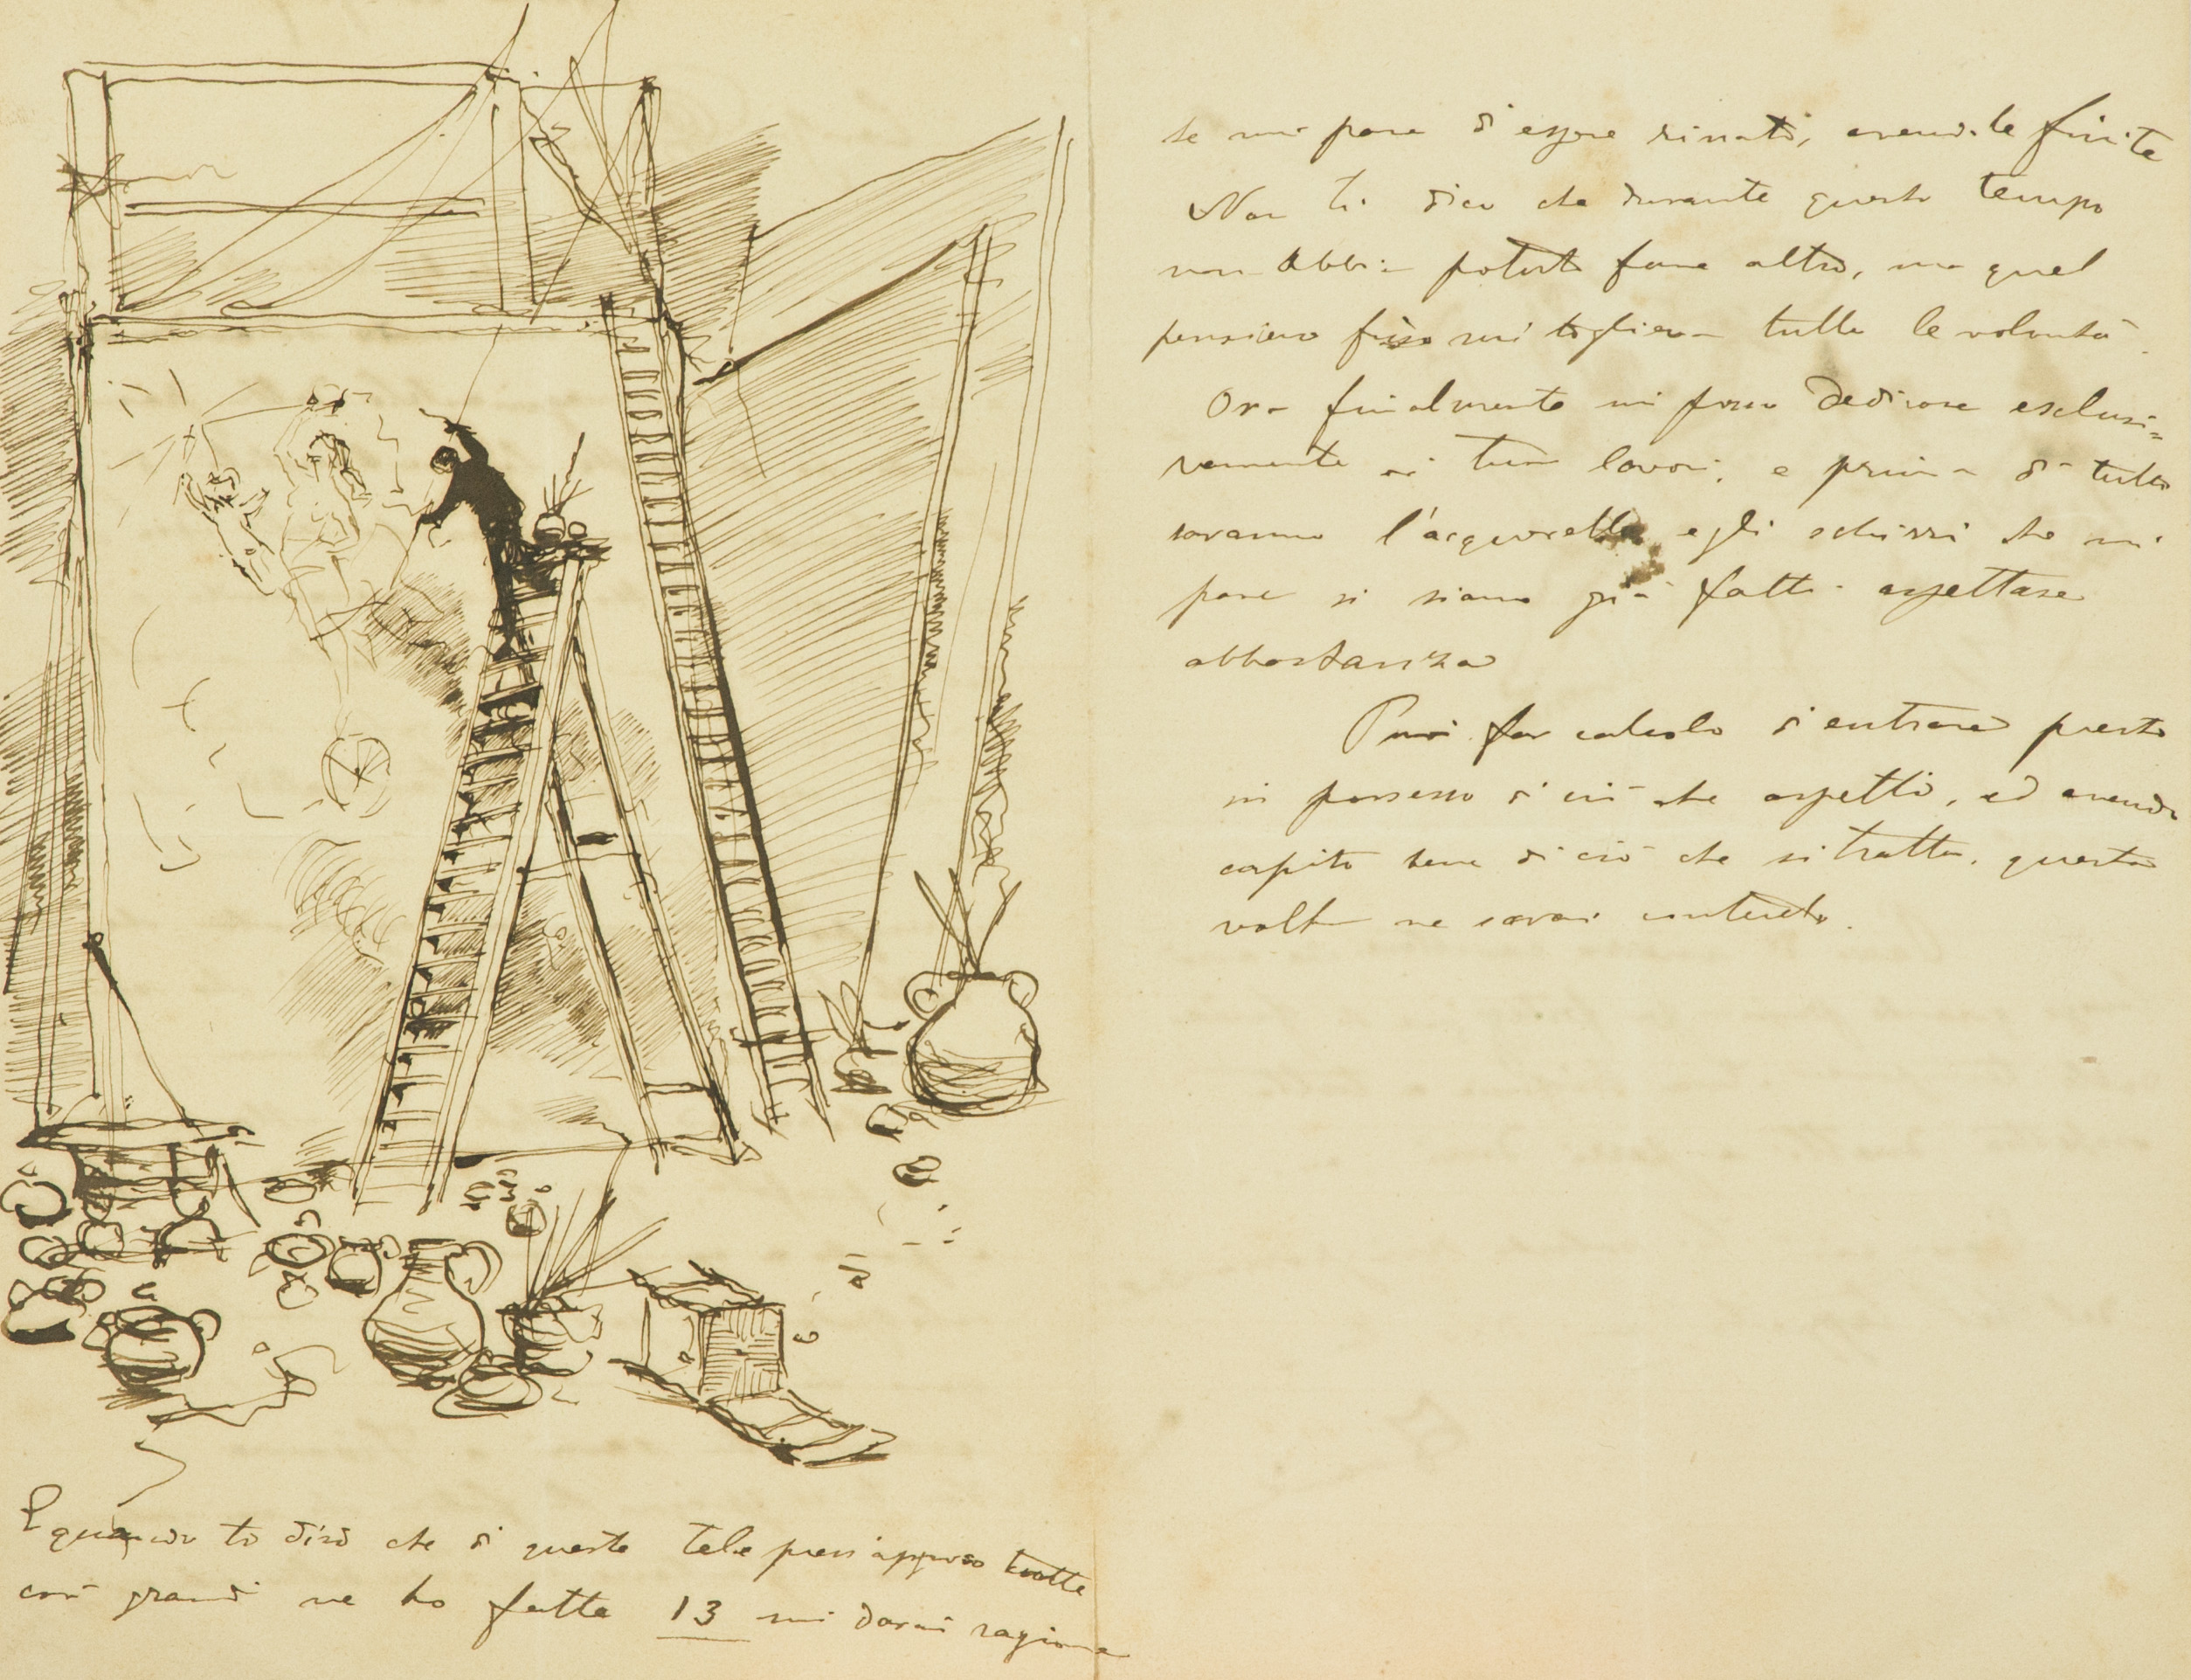 E quando ti dirò che di queste tele press'appoco tutte
così grandi ne ho fatte 13 mi darai ragione
se mi pare di essere rinato, avendole finite
Non ti dico che durante questo tempo
non abbia potuto fare altro, ma quel
pensiero fisso mi toglieva tutta la volontà.
Ora finalmente mi posso dedicare esclusi=
vamente ai tuoi lavori, e prima di tutto
saranno l'acquarello e gli schizzi che mi
pare si siano già fatti aspettare
abbastanza
Puoi far calcolo di entrare presto
in possesso di ciò che aspetti, ed avendo
capito bene di ciò che si tratta, questa
volta ne sarai contento.